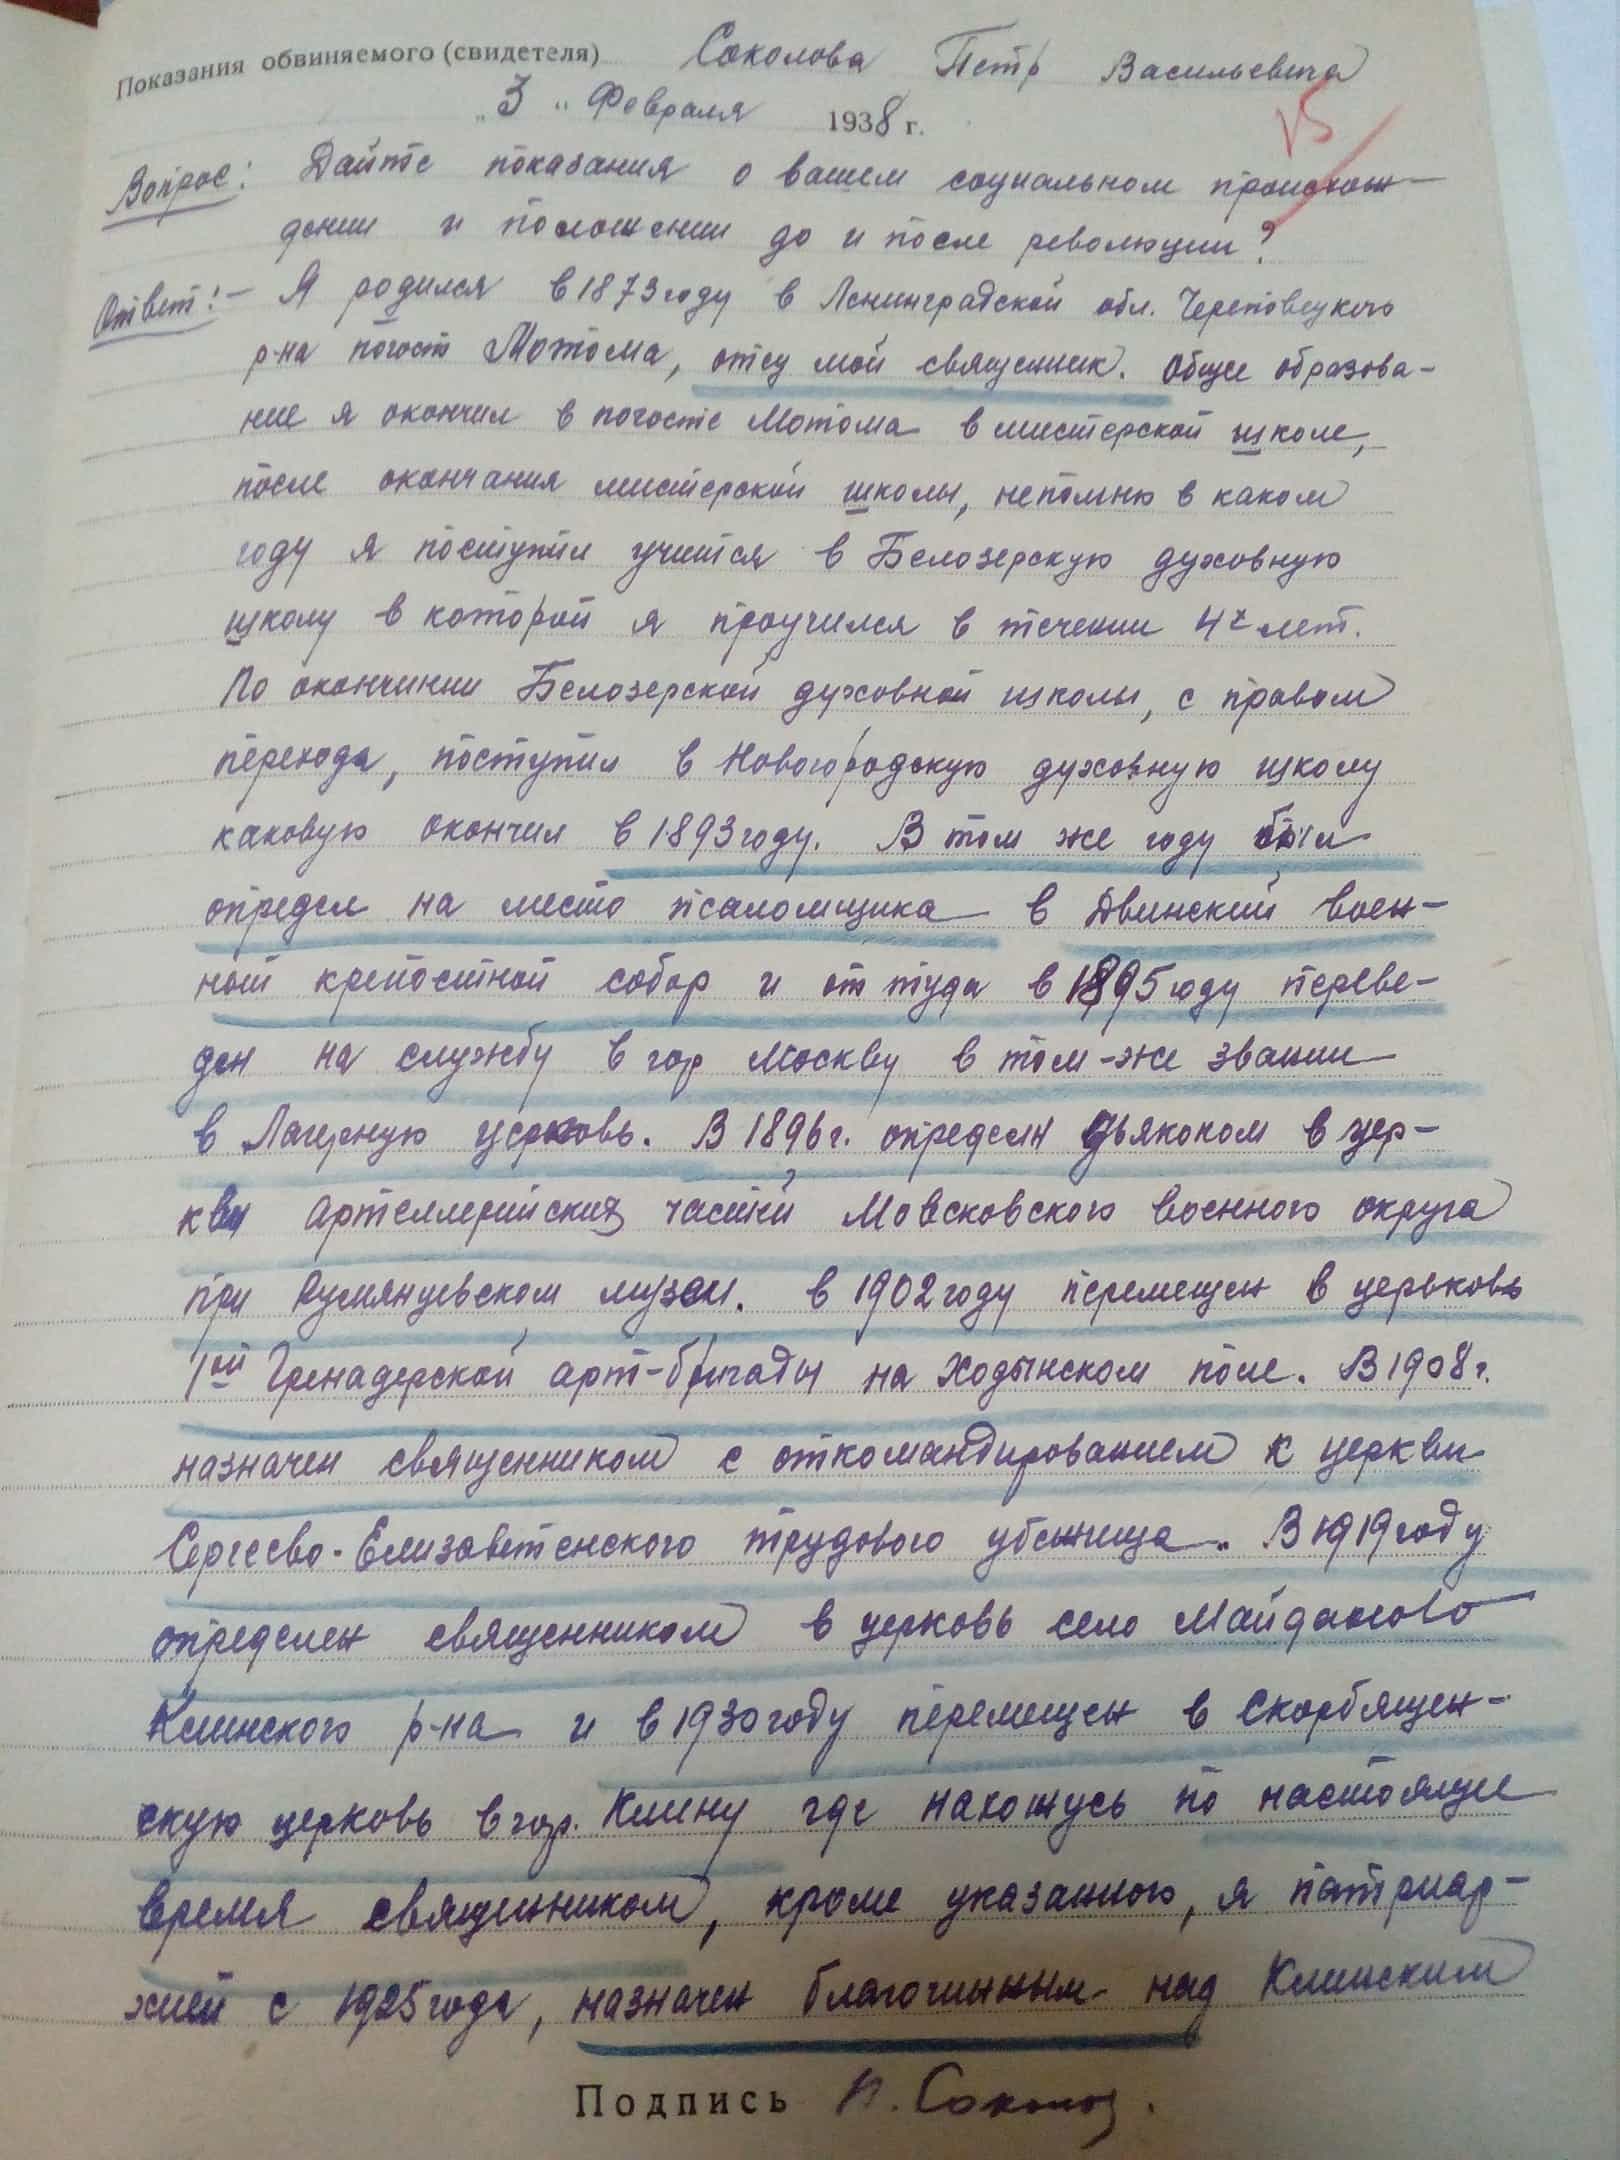 Показания обвиняемого (свидетеля) Соколова Петр Васильевича
„3" Февраля 1938 г.
15
Вопрос: Дайте показания о вашем социальном происхож-
дении и положении до и после революции?
Ответ:- Я родился в 1873 году в Ленинградской обл. Череповецкого
р-на погост Мотома, отец мой священник. Общее образова-
ние я окончил в погосте Мотома в мистерской школе,
после окончания мистерской школы, непомню в каком
году я поступил учится в Белозерскую духовную
школу в которой я проучился в течении 4х лет.
По окончинии Белозерской духовной школы, с правом
перехода, поступил в Новогородскую духовную школу
каковую окончил в 1893 году. В том же году был
определ на место псаломщика в Двинский воен-
ный крепостной собор и от туда в 1895 году переве-
ден на службу в гор Москву в том-же звании
в Лагерную церковь. В 1896 г. определен дьяконом в цер-
кви артеллерийских частей Мовсковского военного округа
при Румянцевском музеи. в 1902 году перемещен в церьковь
1ой Гренадерской арт-бригады на Ходынском поле. В 1908 г.
назначен священником с откомандированием к церкви
Сергеево-Елизаветенского трудового убежища. В 1919 году
определен священником в церковь село Майданово
Клинского р-на и в 1930 году перемещен в Скорбящен-
скую церковь в гор. Клину где нахожусь по настоящее
время священником, кроме указанного, я патриар-
хией с 1925 года, назначен благочинным над Клинским
Подпись П. Соколов.